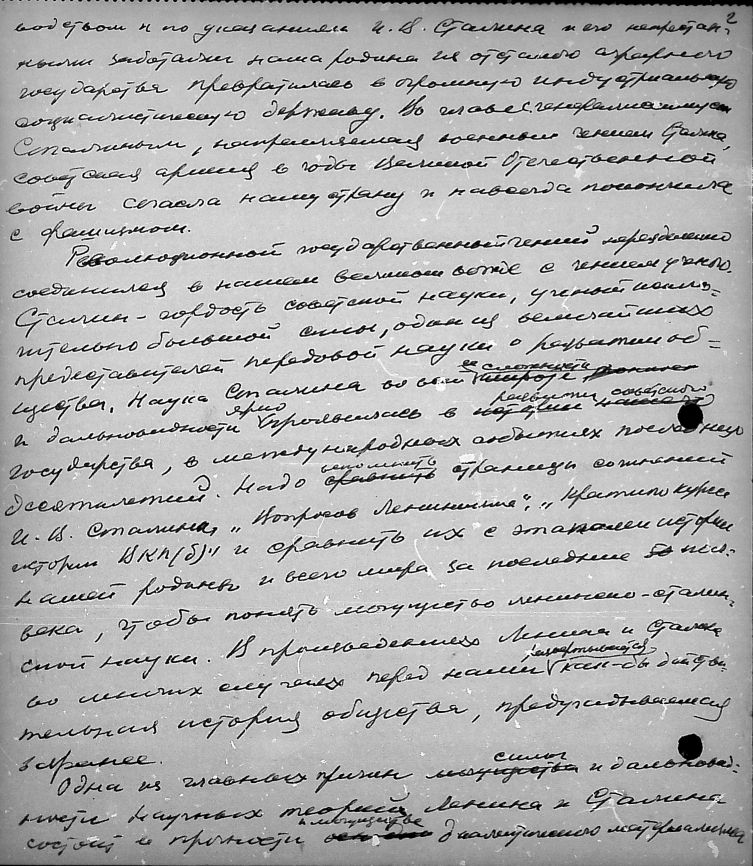 2
водством и по указаниям И. В. Сталина и его непрестан-
ными заботами наша родина из отсталого аграрного
государства превратилась в огромную индустриальную
социалистическую державу. Во главе с генералиссимусом
Сталиным, направляемая военным гением Сталина,
советская армия в годы Великой Отечественной
войны спасла нашу страну и навсегда покончила
с фашизмом.
Революционной государственный гений нераздельно
соединился в нашем великом вожде с гением ученого.
Сталин - гордость советской науки, ученый исклю-
чительно большой силы, один из величайших
представителей передовой науки о развитии об-
щества. Наука Сталина во всей её сложности широте
и дальновидности ярко проявилась в развитии советского
государства, в международных событиях последнего
десятилетий. Надо вспомнить сравнить страницы сочинений
И. В. Сталина, "Вопросов Ленинизма", "Краткого курса
истории ВКП(б)" и сравнить их с этапами истории
нашей родины и всего мира за последние пол-
века, чтобы понять могущество ленинско-сталин-
ской науки. В произведениях Ленина и Сталина
во многих случаях перед нами развертывается как-бы действи-
тельная история общества, предугадываемая
заранее.
Одна из главных причин силы могущества и дальновид-
ности научных теорий Ленина и Сталина
состоит в прочности и могуществе диалектического материализма